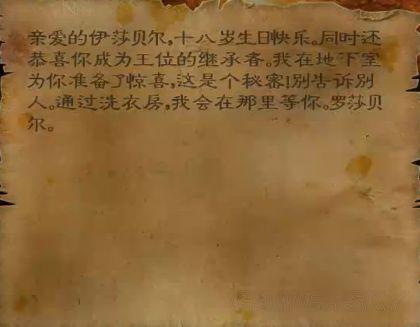 亲爱的伊莎贝尔,十八岁生日快乐。同时还
恭喜你成为王位的继承者。我在地下室
为你准备了惊喜,这是个秘密!别告诉别
人。通过洗衣房,我会在那里等你。罗莎贝
尔。